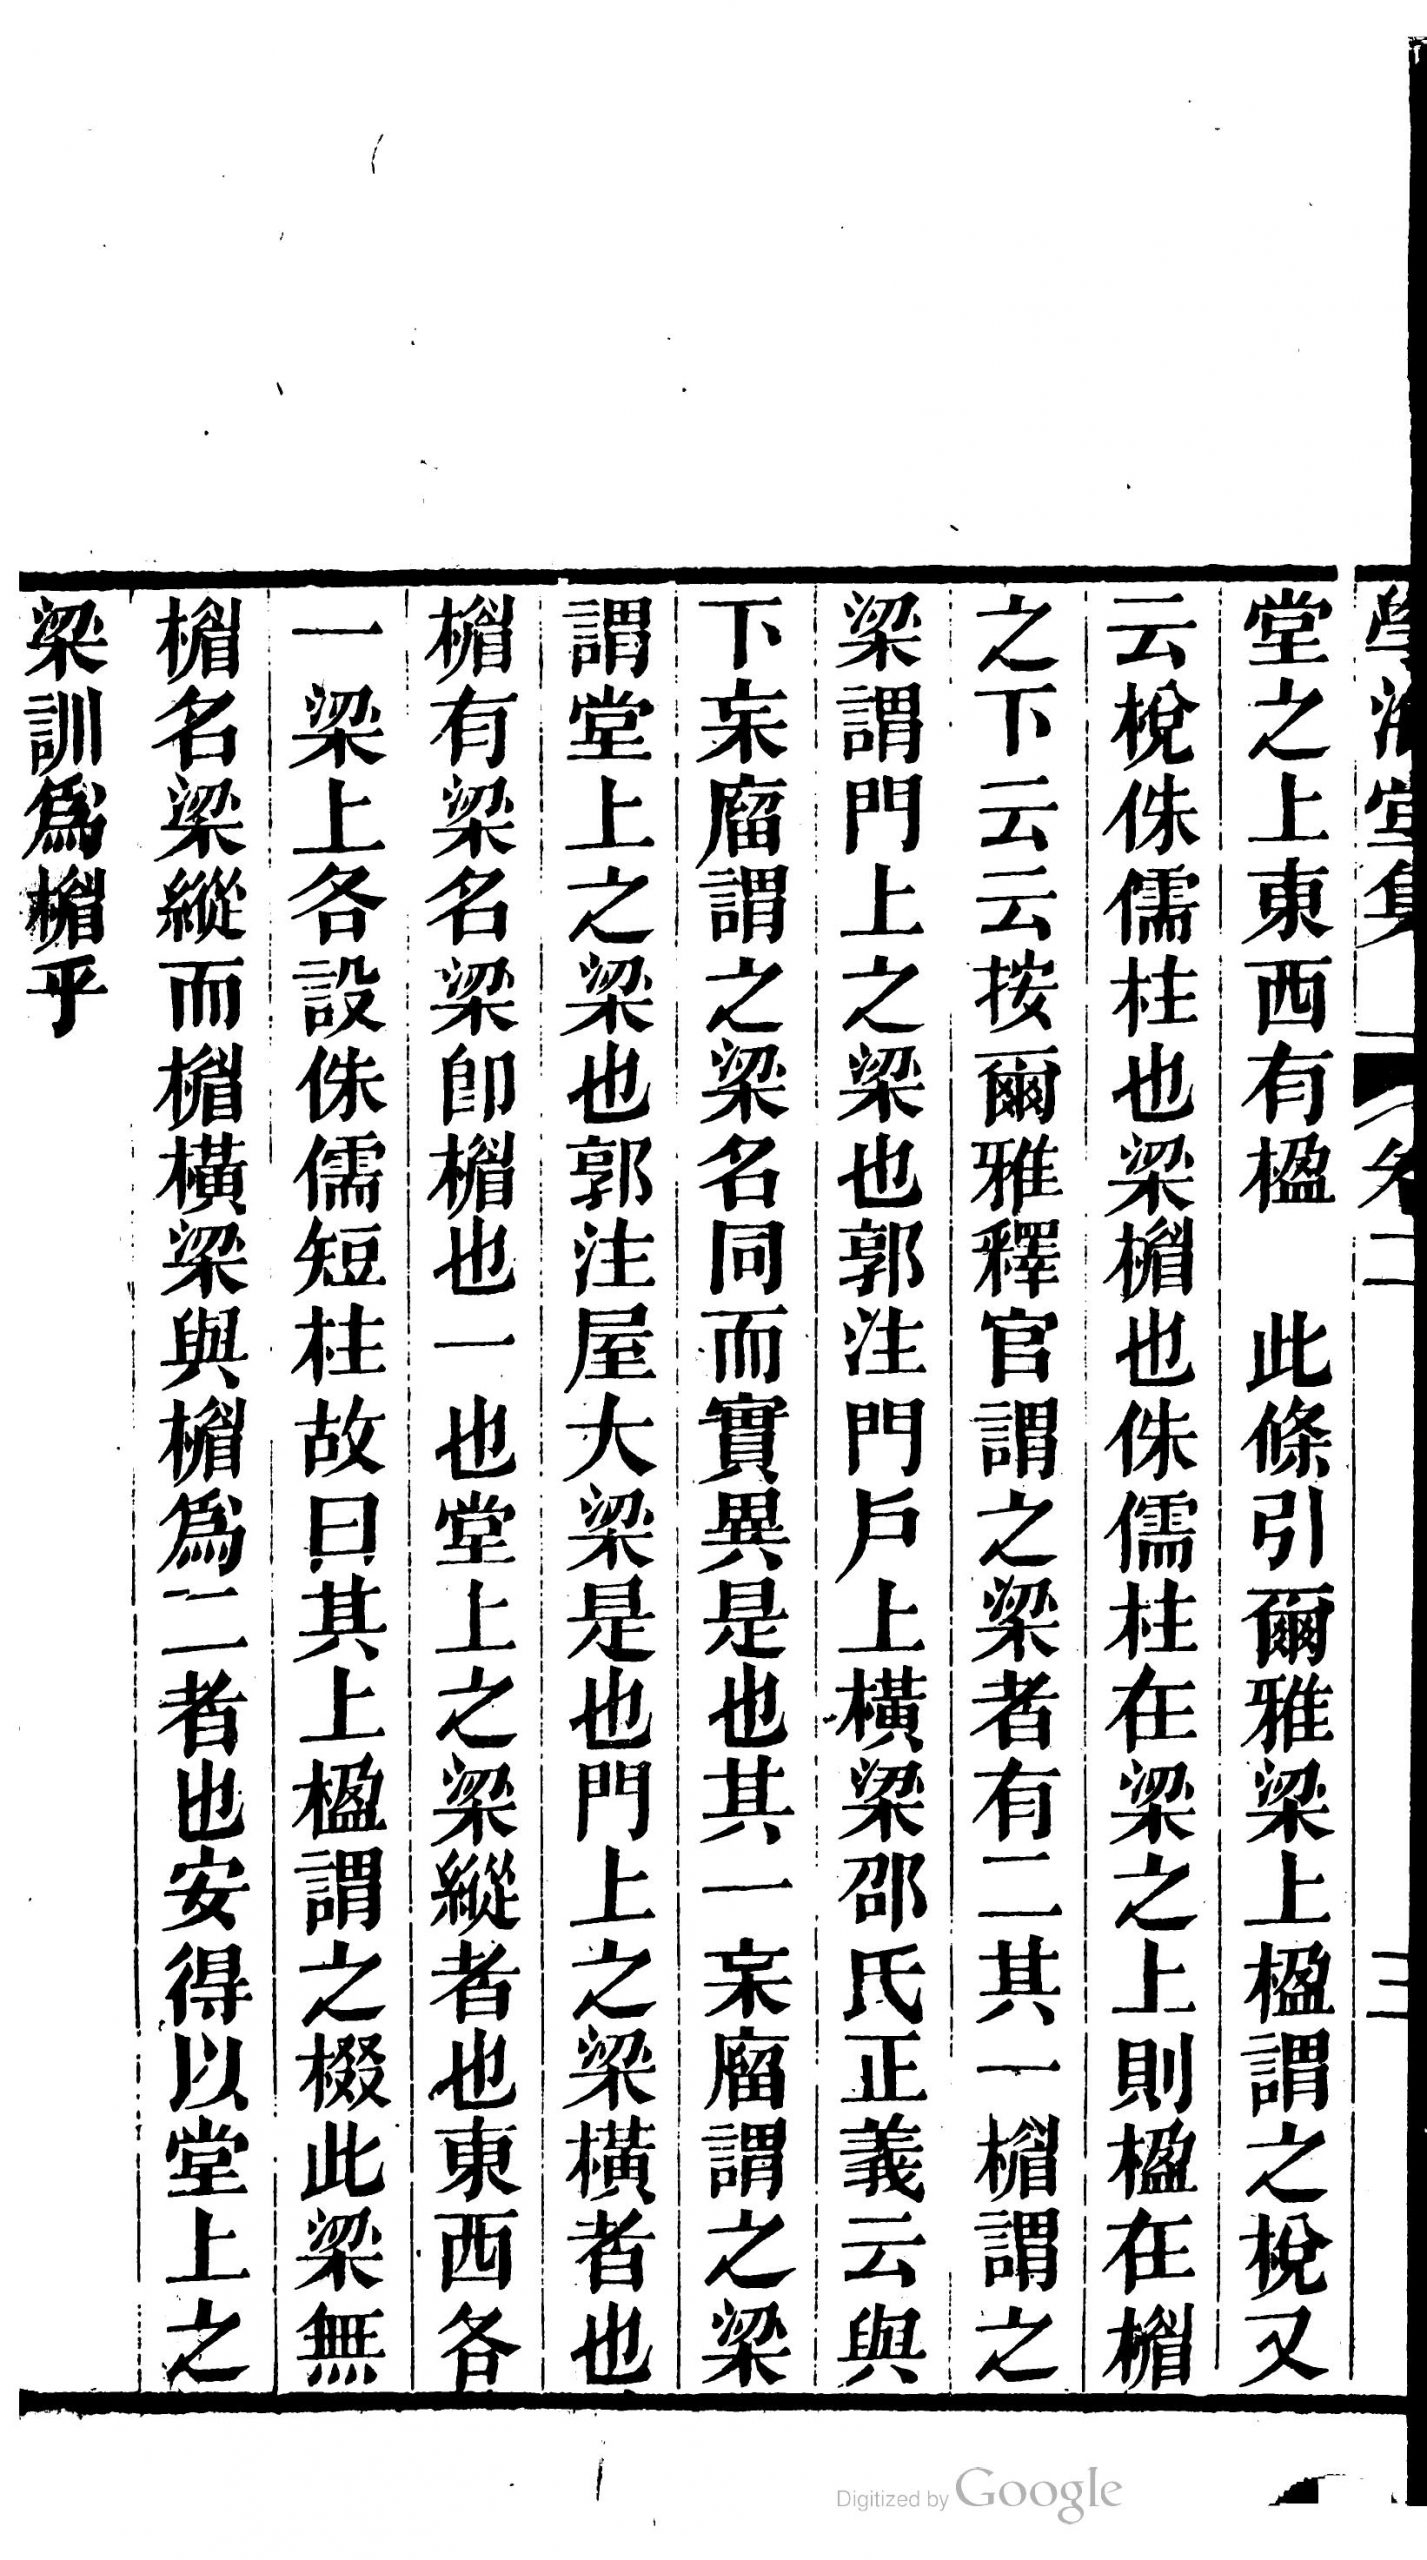 堂之上東西有楹　此條引爾雅梁上楹謂之梲又
云梲侏儒柱也梁楣也侏儒柱在梁之上則楹在楣
之下云云按爾雅釋官謂之梁者有二其一楣謂之
梁謂門上之梁也郭注門戶上橫梁邵氏正義云與
下杗廇謂之梁名同而實異是也其一杗廇謂之梁
謂堂上之梁也郭注屋大梁是也門上之梁橫者也
楣有梁名梁卽楣也一也堂上之梁縱者也東西各
一梁上各設侏儒短柱故曰其上楹謂之棳此梁無
楣名梁縱而楣橫梁與楣爲二者也安得以堂上之
梁訓爲楣乎
Digitized by Google